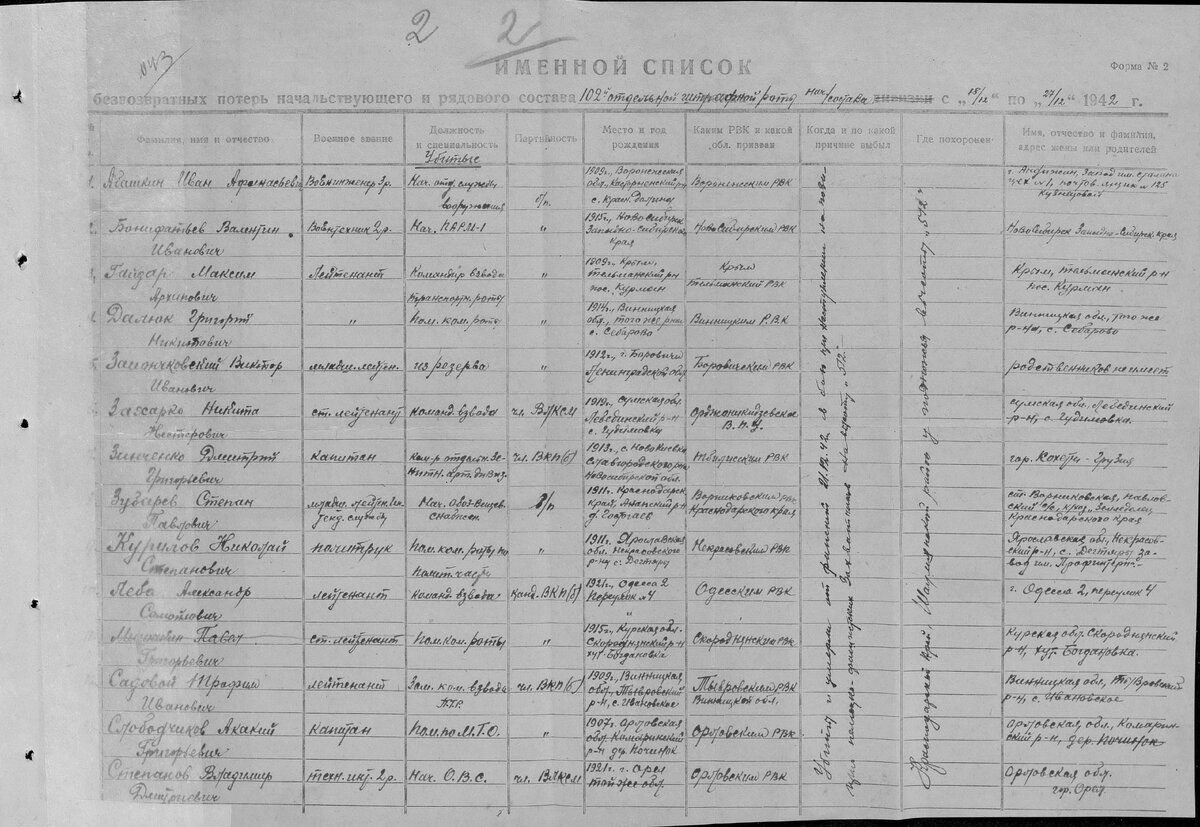 2 2
043
ИМЕННОЙ СПИСОК
Форма № 2
безвозвратных потерь начальствующего и рядового состава 102й отдельной штрафной роты нач/состава дивизии с „15/12" по „27/12" 1942 г.
Фамилия, имя и отчество Военное звание Должность и специальность Партийность Место и год рождения Каким РВК и какой обл. призван Когда и по какой причине выбыл Где похоронен Имя, отчество и фамилия, адрес жены или родителей
Убитые
1. Абашкин Иван Афанасьевич Военинженер 3р. Нач. отд. службы вооружения б/п. 1909г., Воронежская обл. с. Красн. Долина Воронежским РВК г. Андижан, почтов. ящик № 125 Кузнецовой
2. Бонифатьев Валентин Иванович Воентехник 2р. Нач. ПАРМ-1 " 1915г., Новосибирск Западно-Сибирского края Новосибирским РВК Новосибирск Западно-Сибирск. края
3. Гайдар Максим Архипович Лейтенант Командир взвода транспортн. роты " 1909г., Крым, тельманский р-н пос. Курман Крым тельманский РВК Крым, тельманский р-н пос. Курман
4. Далюк Григорий Никитович " пом. ком. роты " 1914г., Винницкая обл., того же р-на с. Сабарово Винницким Р.В.К Винницкая обл., того же р-на, с. Сабарово
5. Заиончковский Виктор Иванович младш. лейтен. из резерва " 1912г., г. Боровичи Ленинградской обл Боровичским РВК родственников не имеет
6. Захарко Никита Нестерович ст. лейтенант команд. взвода чл. ВЛКСМ 1919г., Сумская обл. Лебединский р-н с. Гудимовка Орджоникидзевское В.п.у. Сумская обл. Лебединский р-н, с. Гудимовка.
7. Зинченко Дмитрий Григорьевич капитан ком-р отдельн. зенитн. арт. див-на чл. ВКП(б) 1913г., с. Новокиевка Славгородского р-на Новосибирской обл. Тбилисским РВК гор. Кохоры - Грузия
8. Зубарев Степан Павлович младш. лейтенант Нач. обоз-вещев. снабжен. б/п 1911г. Краснодарск. края, Анапский р-н Ворниковским РВК Краснодарского края Краснодарского края
9. Курилов Николай Степанович политрук пом. ком. роты по полит. части " 1911г., Ярославская обл. Некрасовского р-на с. Дегтяры Некрасовским РВК Ярославская обл, Некрасовский р-н, с. Дегтяры завод им. Профинтерн
Леба Александр Самойлович лейтенант команд. взвода канд. ВКП(б) 1921г., Одесса 2 Переулок № 4 Одесским РВК г. Одесса 2, переулок 4
Павел Григорьевич ст. лейтенант пом. ком. роты " 1915г., Курская обл. Скороднянский р-н хут. Богдановка Скороднянским РВК Курская обл. Скороднянский р-н, хут. Богдановка.
Садовой Трофим Иванович лейтенант Зам. ком. взвода ПТР. чл. ВКП(б) 1909г., Винницкая обл., Тывровский р-н, с. Ивановское Тывровским РВК Винницкой обл. Винницкая обл, Тывровский р-н, с. Ивановское
Слободчиков Акакий Григорьевич капитан пом. по М.Т.О. " 1907г. Орловская обл. Комаричский р-н дер. Починок Орловским РВК Орловская обл, Комаричский р-н, дер. Починок
Степанов Владимир Дмитриевич техн. инт. 2р. Нач. О.В.С. чл. ВЛКСМ 1921г. г. Орел той же обл. Орловским РВК Орловская обл. гор. Орел
Убиты и умерли от ранений 21.12.42 г. в бою при наступлении на позиции немецко-фашистских захватчиков на высоту „512".
Краснодарский край, район у подножья высоты „512"